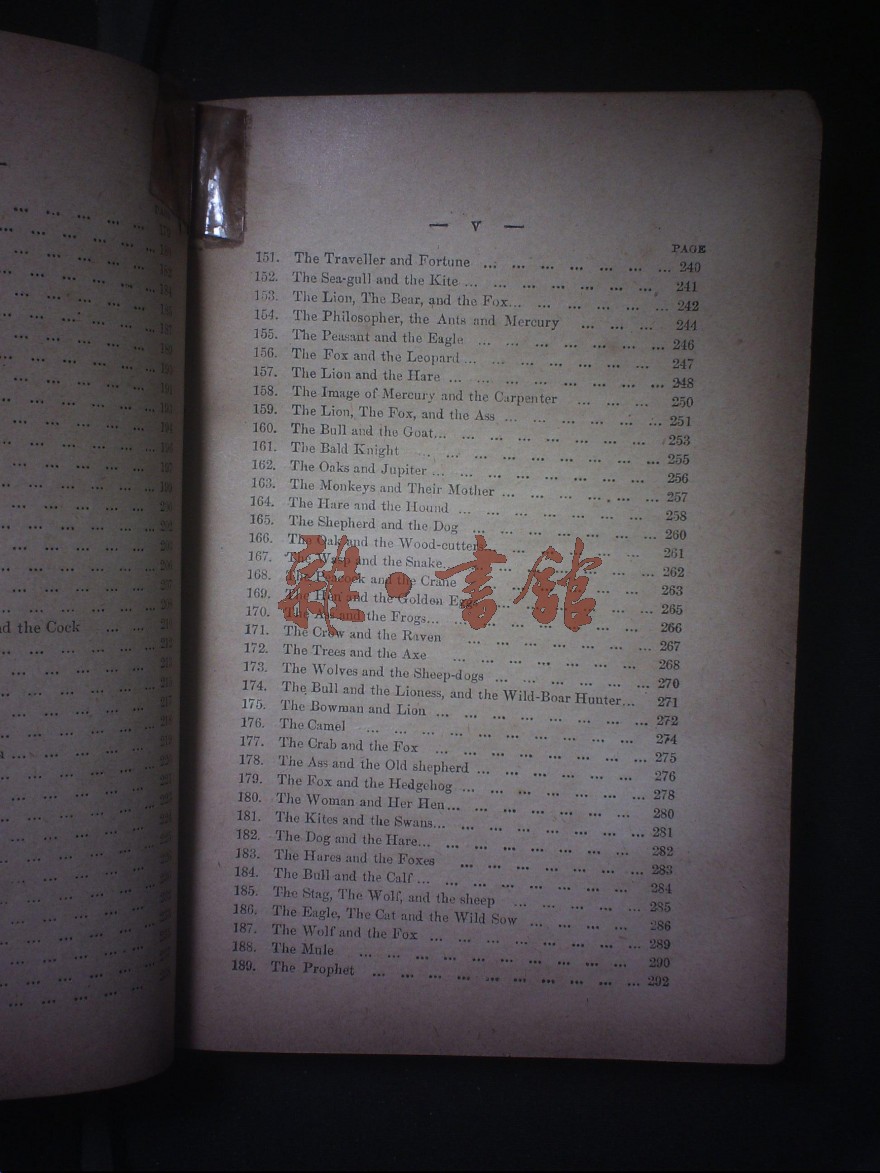 — v —
PAGE
151. The Traveller and Fortune ... ... ... ... ... ... ... 240
152. The Sea-gull and the Kite ... ... ... ... ... ... ... 241
153. The Lion, The Bear, and the Fox... ... ... ... ... ... 242
154. The Philosopher, the Ants and Mercury ... ... ... 244
155. The Peasant and the Eagle ... ... ... ... ... ... ... 246
156. The Fox and the Leopard ... ... ... ... ... ... ... 247
157. The Lion and the Hare ... ... ... ... ... ... ... ... 248
158. The Image of Mercury and the Carpenter ... ... ... 250
159. The Lion, The Fox, and the Ass ... ... ... ... ... ... 251
160. The Bull and the Goat... ... ... ... ... ... ... ... 253
161. The Bald Knight ... ... ... ... ... ... ... ... ... 255
162. The Oaks and Jupiter ... ... ... ... ... ... ... ... 256
163. The Monkeys and Their Mother ... ... ... ... ... ... 257
164. The Hare and the Hound ... ... ... ... ... ... ... 258
165. The Shepherd and the Dog ... ... ... ... ... ... ... 260
166. The Oak and the Wood-cutters ... ... ... ... ... 261
167. The Wasp and the Snake... ... ... ... ... ... ... ... 262
168. The Peacock and the Crane ... ... ... ... ... ... 263
169. The Hen and the Golden Eggs ... ... ... ... ... ... 265
170. The Ass and the Frogs... ... ... ... ... ... ... ... 266
171. The Crow and the Raven ... ... ... ... ... ... ... 267
172. The Trees and the Axe ... ... ... ... ... ... ... 268
173. The Wolves and the Sheep-dogs ... ... ... ... ... ... 270
174. The Bull and the Lioness, and the Wild-Boar Hunter... 271
175. The Bowman and Lion ... ... ... ... ... ... ... ... 272
176. The Camel ... ... ... ... ... ... ... ... ... ... 274
177. The Crab and the Fox ... ... ... ... ... ... ... ... 275
178. The Ass and the Old shepherd ... ... ... ... ... ... 276
179. The Fox and the Hedgehog ... ... ... ... ... ... ... 278
180. The Woman and Her Hen... ... ... ... ... ... ... 280
181. The Kites and the Swans... ... ... ... ... ... ... ... 281
182. The Dog and the Hare... ... ... ... ... ... ... ... 282
183. The Hares and the Foxes ... ... ... ... ... ... ... 283
184. The Bull and the Calf ... ... ... ... ... ... ... ... 284
185. The Stag, The Wolf, and the sheep ... ... ... ... ... 285
186. The Eagle, The Cat and the Wild Sow ... ... ... ... 286
187. The Wolf and the Fox ... ... ... ... ... ... ... ... 289
188. The Mule ... ... ... ... ... ... ... ... ... ... 290
189. The Prophet ... ... ... ... ... ... ... ... ... ... 292
d the Cock ... ...
雜·書館